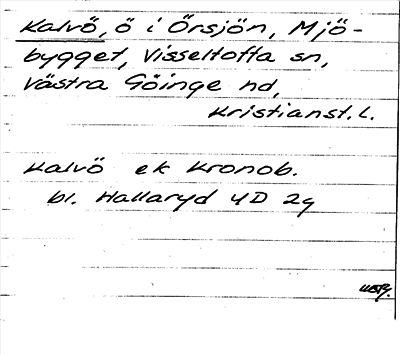 Kalvö, ö i Örsjön, Mjö-
bygget, Visseltofta sn,
Västra Göinge hd,
Kristianst. l.
Kalvö ek Kronob.
bl. Hallaryd 4D 2g